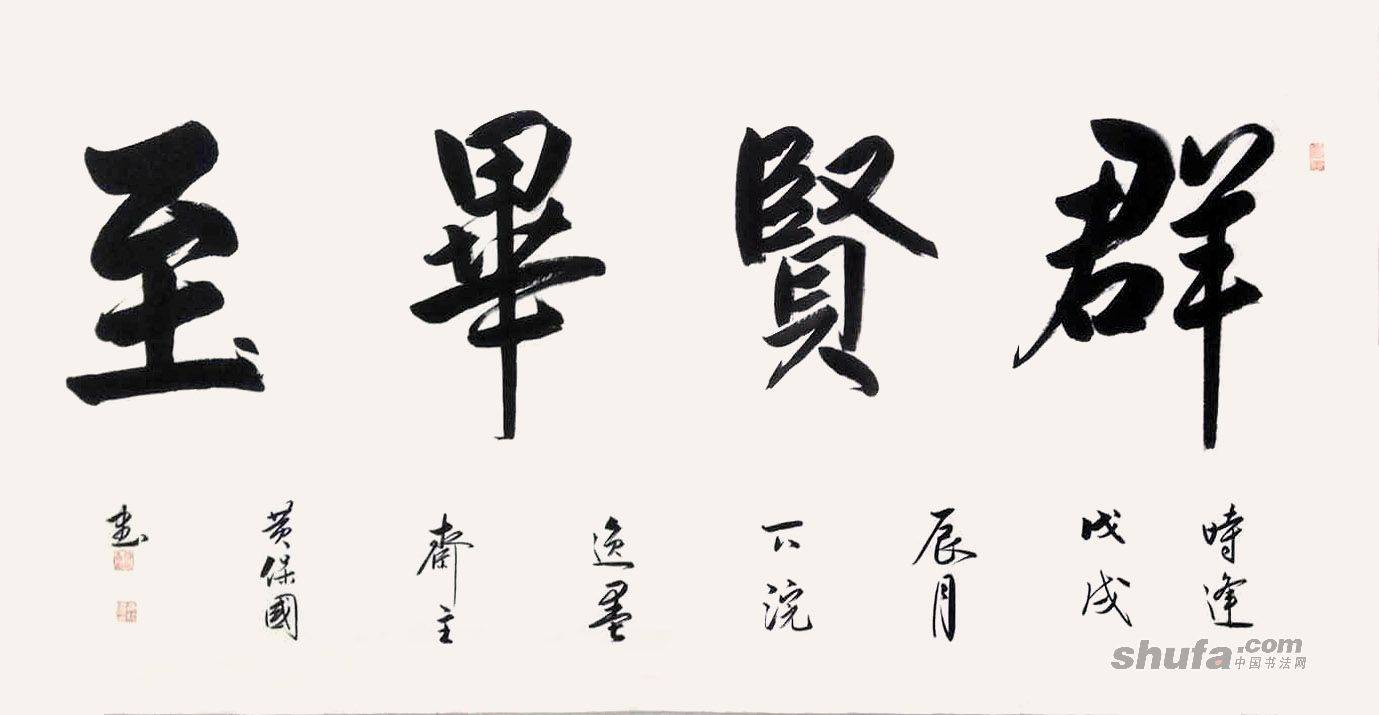 群賢畢至
時逢
戊戌
辰月
下浣
逸墨
齋主
黄保國
書
shufa.com
中国书法网